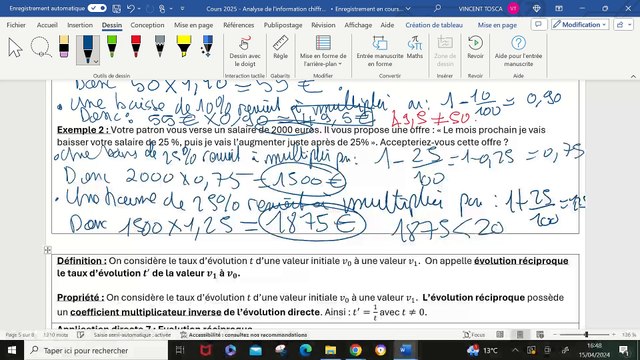 Enregistrement automatique
Cours 2025 - Analyse de l'information chiffr... • Enregistrement en cours...
VINCENT TOSCA
VT
Fichier Accueil Insertion Dessin Conception Mise en page Références Publipostage Révision Affichage Aide Création de tableau Mise en page
Modification
Dessin avec le doigt
Mise en forme de l'arrière-plan
Entrée manuscrite en forme
Entrée manuscrite en Maths
Aide pour l'entrée manuscrite
Outils de dessin
Interaction tactile
Règles
Convertir
Aide
Donc 50 × 1,10 = 55 €
• Une baisse de 10% revient à multiplier par : 1 - 10/100 = 0,90
Donc : 55 € × 0,90 = 49,5 €
49,5 ≠ 50
Exemple 2 : Votre patron vous verse un salaire de 2000 euros. Il vous propose une offre : « Le mois prochain je vais
baisser votre salaire de 25 %, puis je vais l'augmenter juste après de 25% ». Accepteriez-vous cette offre ?
• Une baisse de 25% revient à multiplier par : 1 - 25/100 = 1-0,25 = 0,75
Donc 2000 × 0,75 = 1500 €
• Une hausse de 25% revient à multiplier par : 1 + 25/100 =
Donc 1500 × 1,25 = 1875 €
1875 < 20
Définition : On considère le taux d'évolution t d'une valeur initiale v₀ à une valeur v₁. On appelle évolution réciproque
le taux d'évolution t' de la valeur v₁ à v₀.
Propriété : On considère le taux d'évolution t d'une valeur initiale v₀ à une valeur v₁. L'évolution réciproque possède
un coefficient multiplicateur inverse de l'évolution directe. Ainsi : t' = 1/t avec t ≠ 0.
Application directe 7 : Evolution réciproque
Page 5 sur 8
Saisie semi-automatique : activée
Accessibilité : consultez nos recommandations
Taper ici pour rechercher
13°C
16:48
15/04/2024